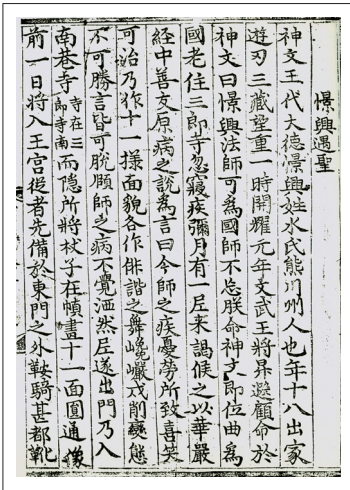 憬興遇聖
神文王代大德憬興姓水氏熊川州人也年十八出家
遊刃三藏望重一時開耀元年文武王將昇遐顧命於
神文曰憬興法師可為國師不忘朕命神文即位曲為
國老住三郎寺忽寢疾彌月有一尼来謁候之以華嚴
経中善友原病之說為言曰今師之疾憂勞所致喜笑
可治乃作十一樣面貌各作俳諧之舞巉巖戌削變態
不可勝言皆可脫頤師之病不覺洒然尼遂出門乃入
南巷寺寺在三郎寺南而隱所將杖子在幀畫十一面圓通像
前一日將入王宮從者先備於東門之外鞍騎甚都靴